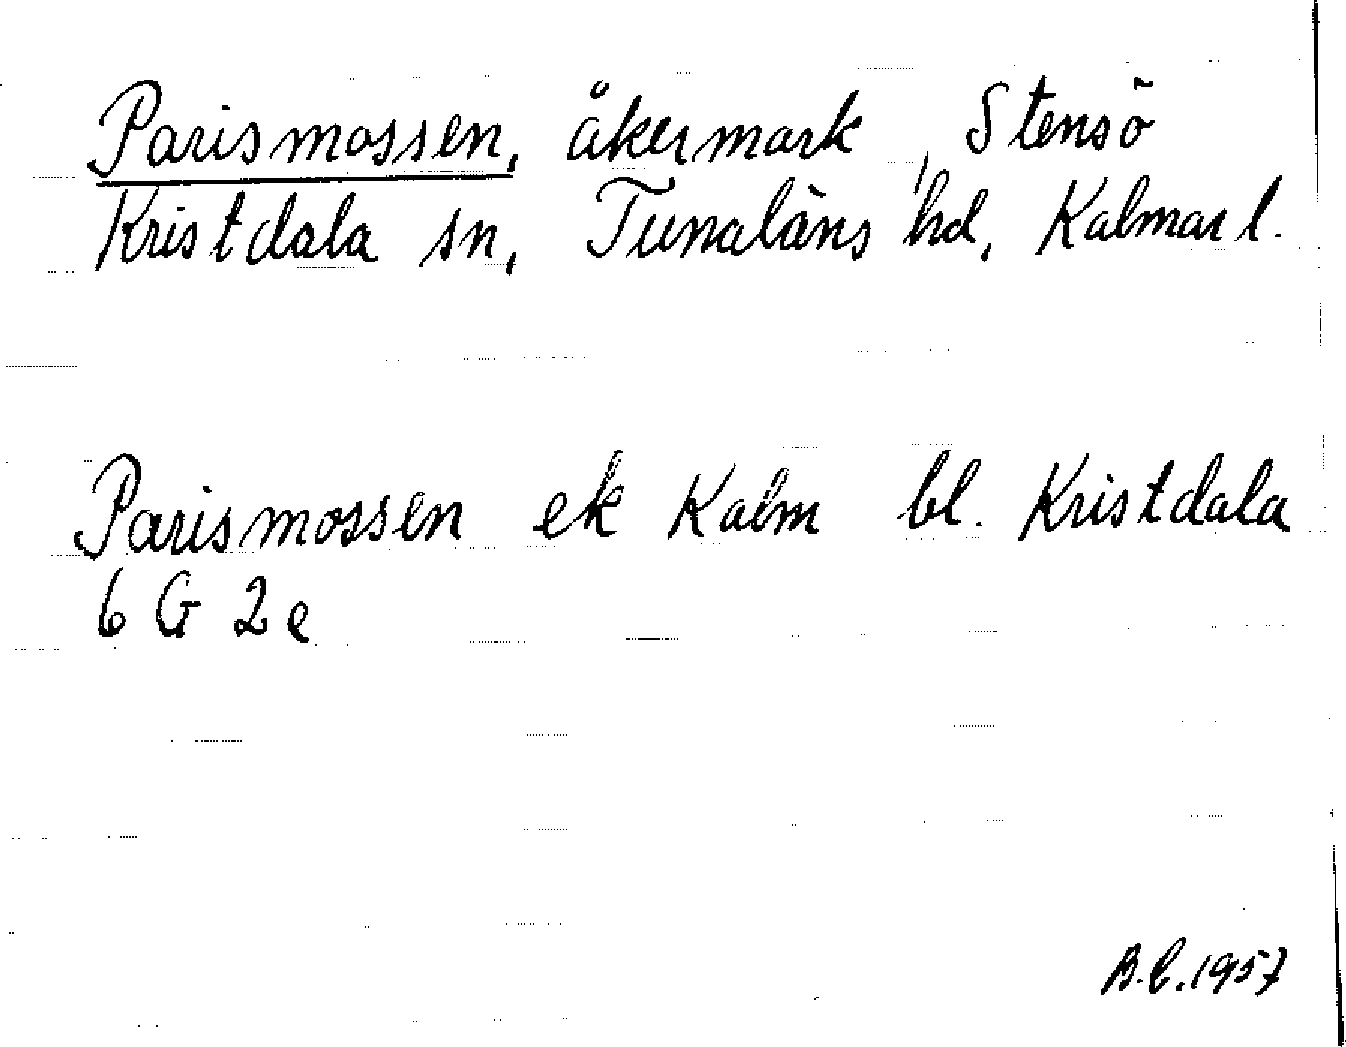 Parismossen, åkermark, Stensö
Kristdala sn, Tunaläns hd, Kalmar l.
Parismossen ek Kalm bl. Kristdala
6 G 2 e
B.C. 1957